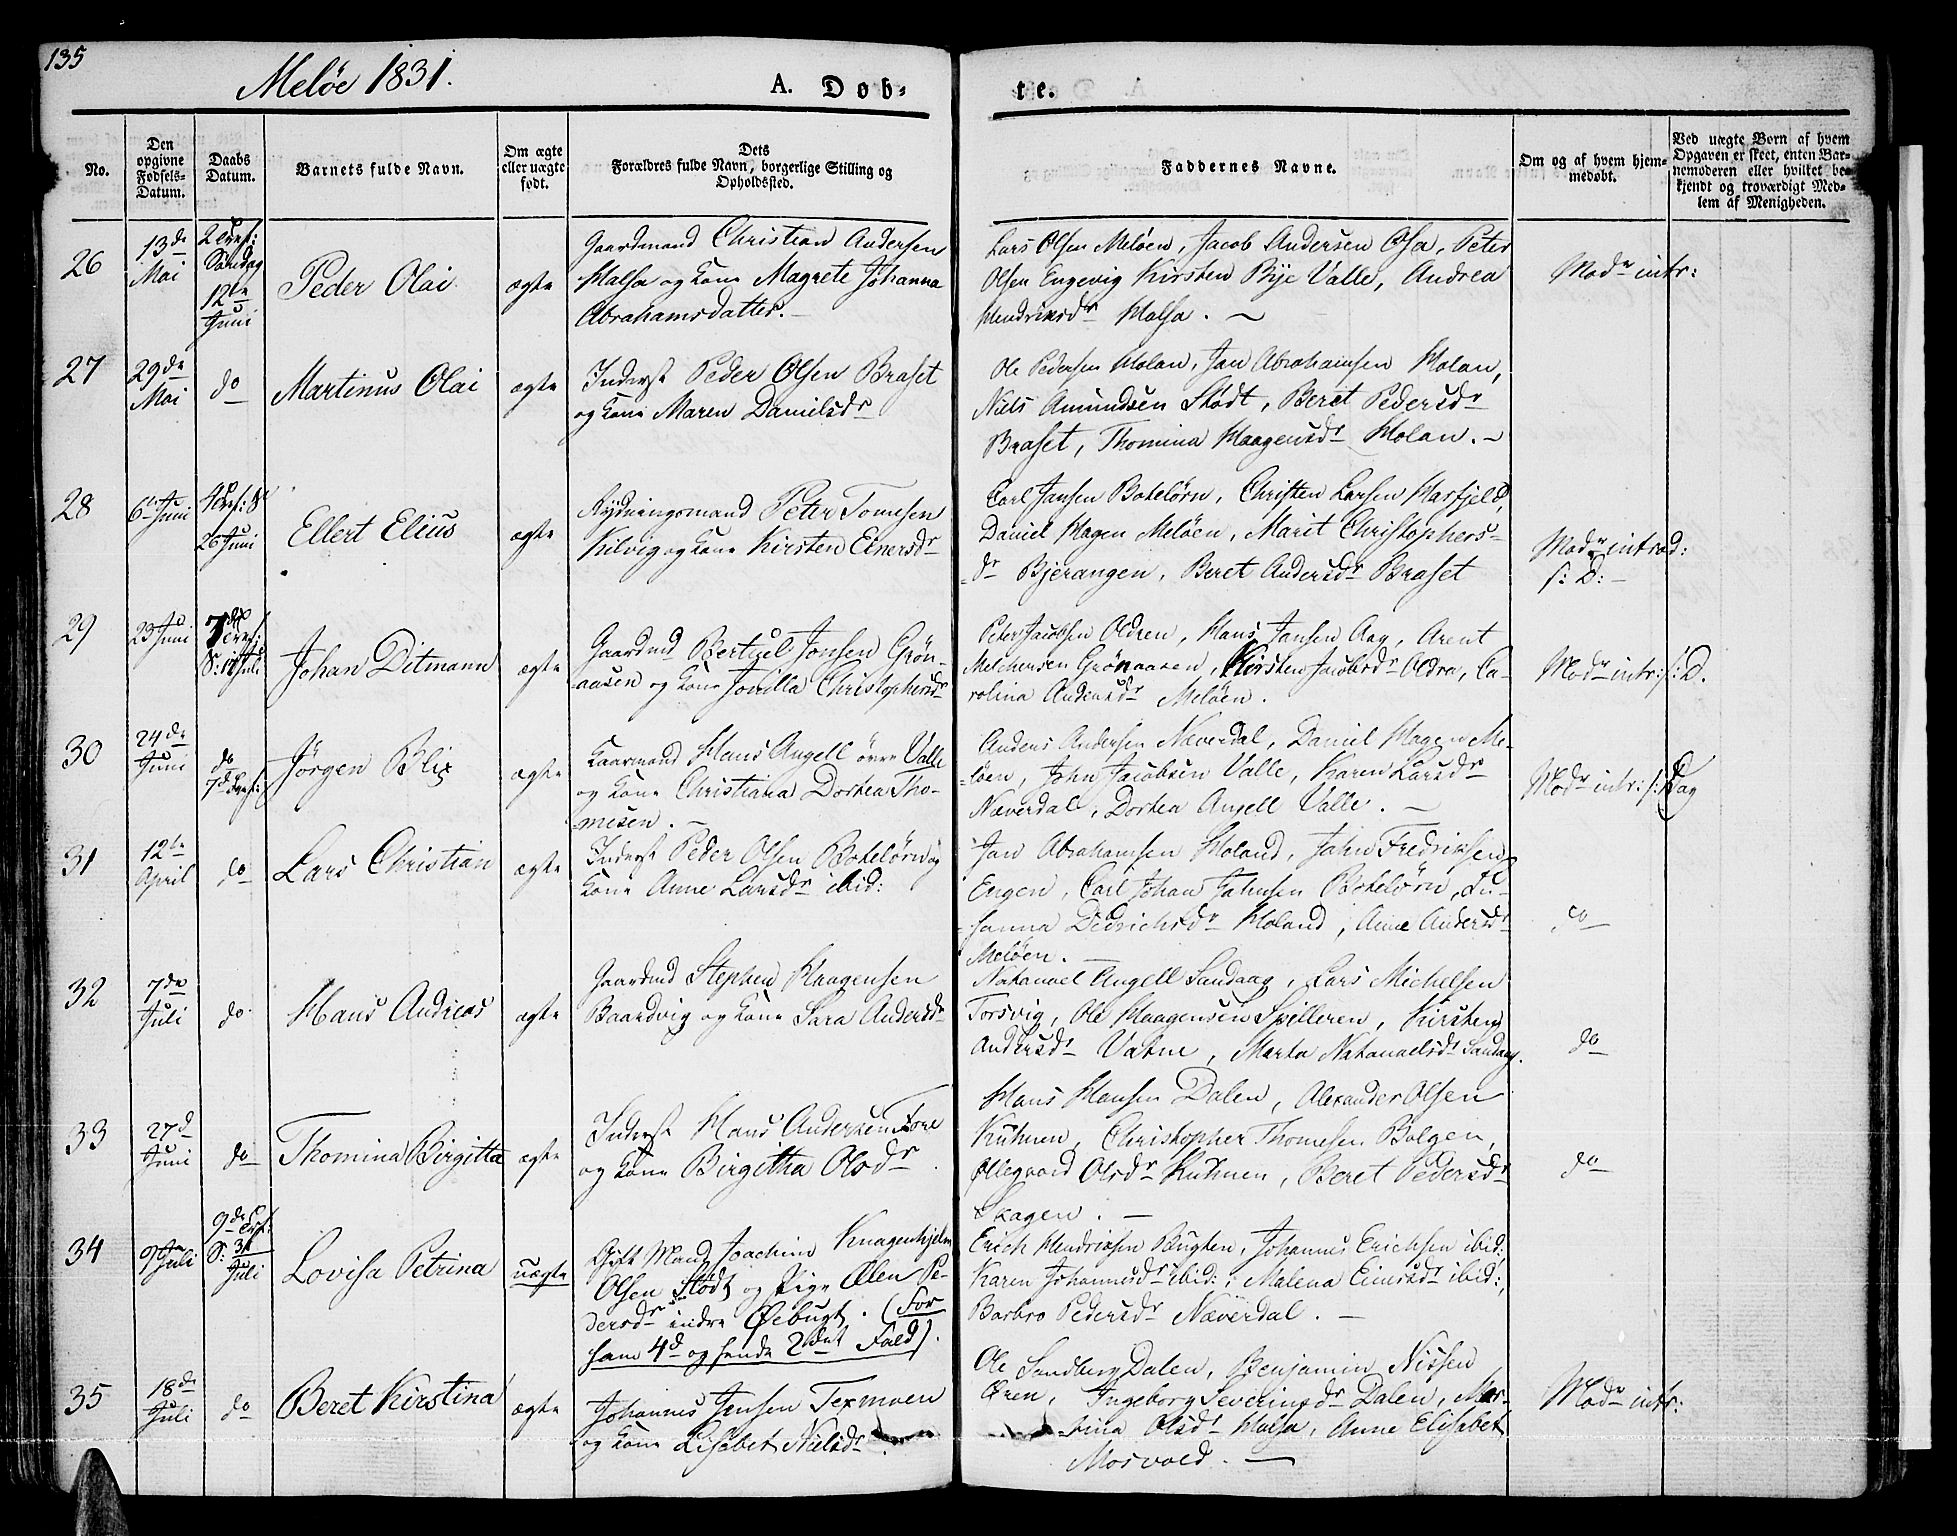 135
Meløe 1831.
A. Døb-
te.
No.
Den opgivne Fødsels-Datum.
Daabs Datum.
Barnets fulde Navn.
Om ægte eller uægte født.
Dets Forældres fulde Navn, borgerlige Stilling og Opholdssted.
Faddernes Navne.
Om og af hvem hjem-medøbt.
Ved uægte Børn af hvem Opgaven er skeet, enten Bar-nemoderen eller hvilket be-kjendt og troværdigt Med-lem af Menigheden.
26
13de Mai
Søndag 12te Juni
Peder Olai
ægte
Gaardmand Christian Andersen
Halsa og Kone Magrete Johanna
Abrahamsdatter.
Lars Olsen Meløen, Jacob Andersen Osa, Peter
Olsen Engevig Kirsten Bye Valle, Andrea
Hendriksdr Halsa.
Modr intr:
27
29de Mai
do
Martinus Olai
ægte
Inderst Peder Olsen Braset
og Kone Maren Danielsdr
Ole Pedersen Holan, Jan Abrahamsen Holan,
Niels Amundsen Stødt, Beret Pedersdr
Braset, Thomina Haagensdr Holan.
28
6te Juni
26 Juni
Ellert Elius
ægte
Rydningsmand Peter Tomesen
Kilvig og Kone Kirsten Einersdr
Carl Jansen Botelørn, Christen Larsen Harfjeld,
Daniel Hagen Meløen, Marit Christophers-
dr Bjerangen, Beret Andersdr Braset
Modr introd:
s: D:
29
23 Juni
Johan Ditmann
ægte
Gaardmd Bertuel Jonsen Grøn-
aasen og Kone Jovilla Christophersdr
Peter Jacobsen Oldren, Hans Jansen Aag, Arent
Melchersen Grønaasen, Kirsten Jacobsdr Oldra, Ca-
rolina Andersdr Meløen.
Modr intr: s: D.
30
24de Juni
do
Jørgen Blix
ægte
Kaarmand Hans Angell øvre Valle
og Kone Christiana Dorhea Tho-
mesen.
Anders Andersen Næverdal, Daniel Hagen Me-
løen, John Jacobsen Valle, Karen Larsdr
Næverdal, Dorhea Angell Valle.
Modr intr: s: Dag
31
12te April
do
Lars Christian
ægte
Inderst Peder Olsen Boteløren og
Kone Anne Larsdr ibid:
Jan Abrahamsen Holand, John Fredriksen
Engen, Carl Johan Jahnsen Botelørn, Su-
sanna Didrichsdr Holand, Anne Andersdr
Meløen.
do
32
7de Juli
do
Hans Andreas
ægte
Gaardmd Stephen Haagensen
Baardvig og Kone Sara Andersdr
Nathanael Angell Sandaag, Lars Michelsen
Torsvig, Ole Haagensen Spilleren, Kirsten
Andersdr Vatne, Marta Nathanaelsdr Sandaag.
do
33
27d Juni
do
Thomina Birgitta
ægte
Inderst Hans Andersen Fore
og Kone Birgitha Olsdr
Hans Hansen Dalen, Alexander Olsen
Kuhnen, Christopher Thomesen Bolgen,
Øllegaard Olsdr Kuhnen, Beret Pedersdr
Skagen.
do
34
9de Juli
S: 31 Juli
Lovisa Petrina
uægte
Gift Mand Joachim Knagenhjelm
Olsen Stødt og Pige Elen Pe-
dersdr indre Øebugt. (For
ham 4d og hende 2det Fald).
Erich Hendriksen Bugten, Johannes Erichsen ibid:
Karen Johannesdr ibid:, Malena Einersdr ibid:,
Barbro Pedersdr Næverdal.
35
18de Juli
do
Beret Kirstina
ægte
Johannes Jensen Texmoen
og Kone Lisabet Nielsdr
Ole Sandberg Dalen, Benjamin Nissen
Øren, Ingeborg Severinsdr Dalen, Mar-
tina Olsdr Halsa, Anne Elisabet
Mosvold.
Modr intr: